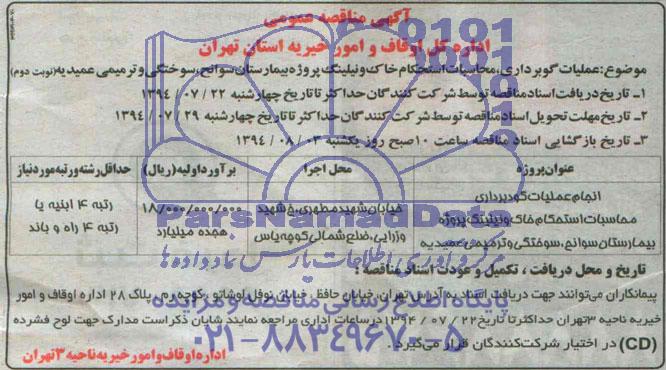 آگهی مناقصه عمومی
اداره کل اوقاف و امور خیریه استان تهران
موضوع: عملیات گودبرداری، محاسبات استحکام خاک و نیلینگ پروژه بیمارستان سوانح، سوختگی و ترمیمی عمیدیه (نوبت دوم)
۱ـ تاریخ دریافت اسناد مناقصه توسط شرکت کنندگان حداکثر تا تاریخ چهارشنبه ۲۲ / ۰۷ / ۱۳۹۴
۲ـ تاریخ مهلت تحویل اسناد مناقصه توسط شرکت کنندگان حداکثر تا تاریخ چهارشنبه ۲۹ / ۰۷ / ۱۳۹۴
۳ـ تاریخ بازگشایی اسناد مناقصه ساعت ۱۰ صبح روز یکشنبه ۰۳ / ۰۸ / ۱۳۹۴
عنوان پروژه محل اجرا برآورد اولیه (ریال) حداقل رشته و رتبه مورد نیاز
انجام عملیات گودبرداری
محاسبات استحکام خاک و نیلینگ پروژه
بیمارستان سوانح، سوختگی و ترمیمی عمیدیه
خیابان شهید مطهری، خ شهید
وزرایی، ضلع شمالی کوچه یاس
۱۸/۰۰۰/۰۰۰/۰۰۰
هجده میلیارد
رتبه ۴ ابنیه یا
رتبه ۴ راه و باند
تاریخ و محل دریافت ، تکمیل و عودت اسناد مناقصه :
پیمانکاران می‌توانند جهت دریافت اسناد به آدرس تهران، خیابان حافظ، خیابان نوفل لوشاتو، کوچه، پلاک ۲۸ اداره اوقاف و امور
خیریه ناحیه ۳ تهران حداکثر تا تاریخ ۲۲ / ۰۷ / ۱۳۹۴ در ساعات اداری مراجعه نمایند شایان ذکر است مدارک جهت لوح فشرده
(CD) در اختیار شرکت کنندگان قرار می‌گیرد .
اداره اوقاف و امور خیریه ناحیه ۳ تهران
ParsNamadData
مرکز فرآوری اطلاعات پارس نماد داده ها
پایگاه اطلاع رسانی مناقصه و مزایده
۰۲۱-۸۸۳۴۹۶۷۰-۵